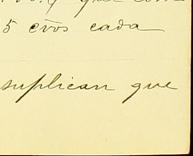 que
5 c̃vos cada
suplican que